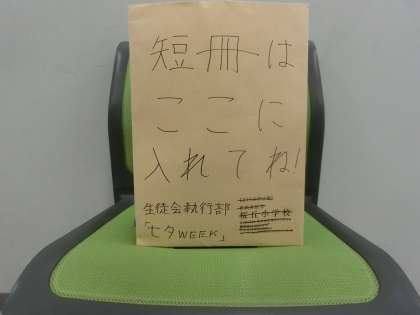 短冊は
ここに
入れてね!
生徒会執行部
「七夕WEEK」
桜丘小学校